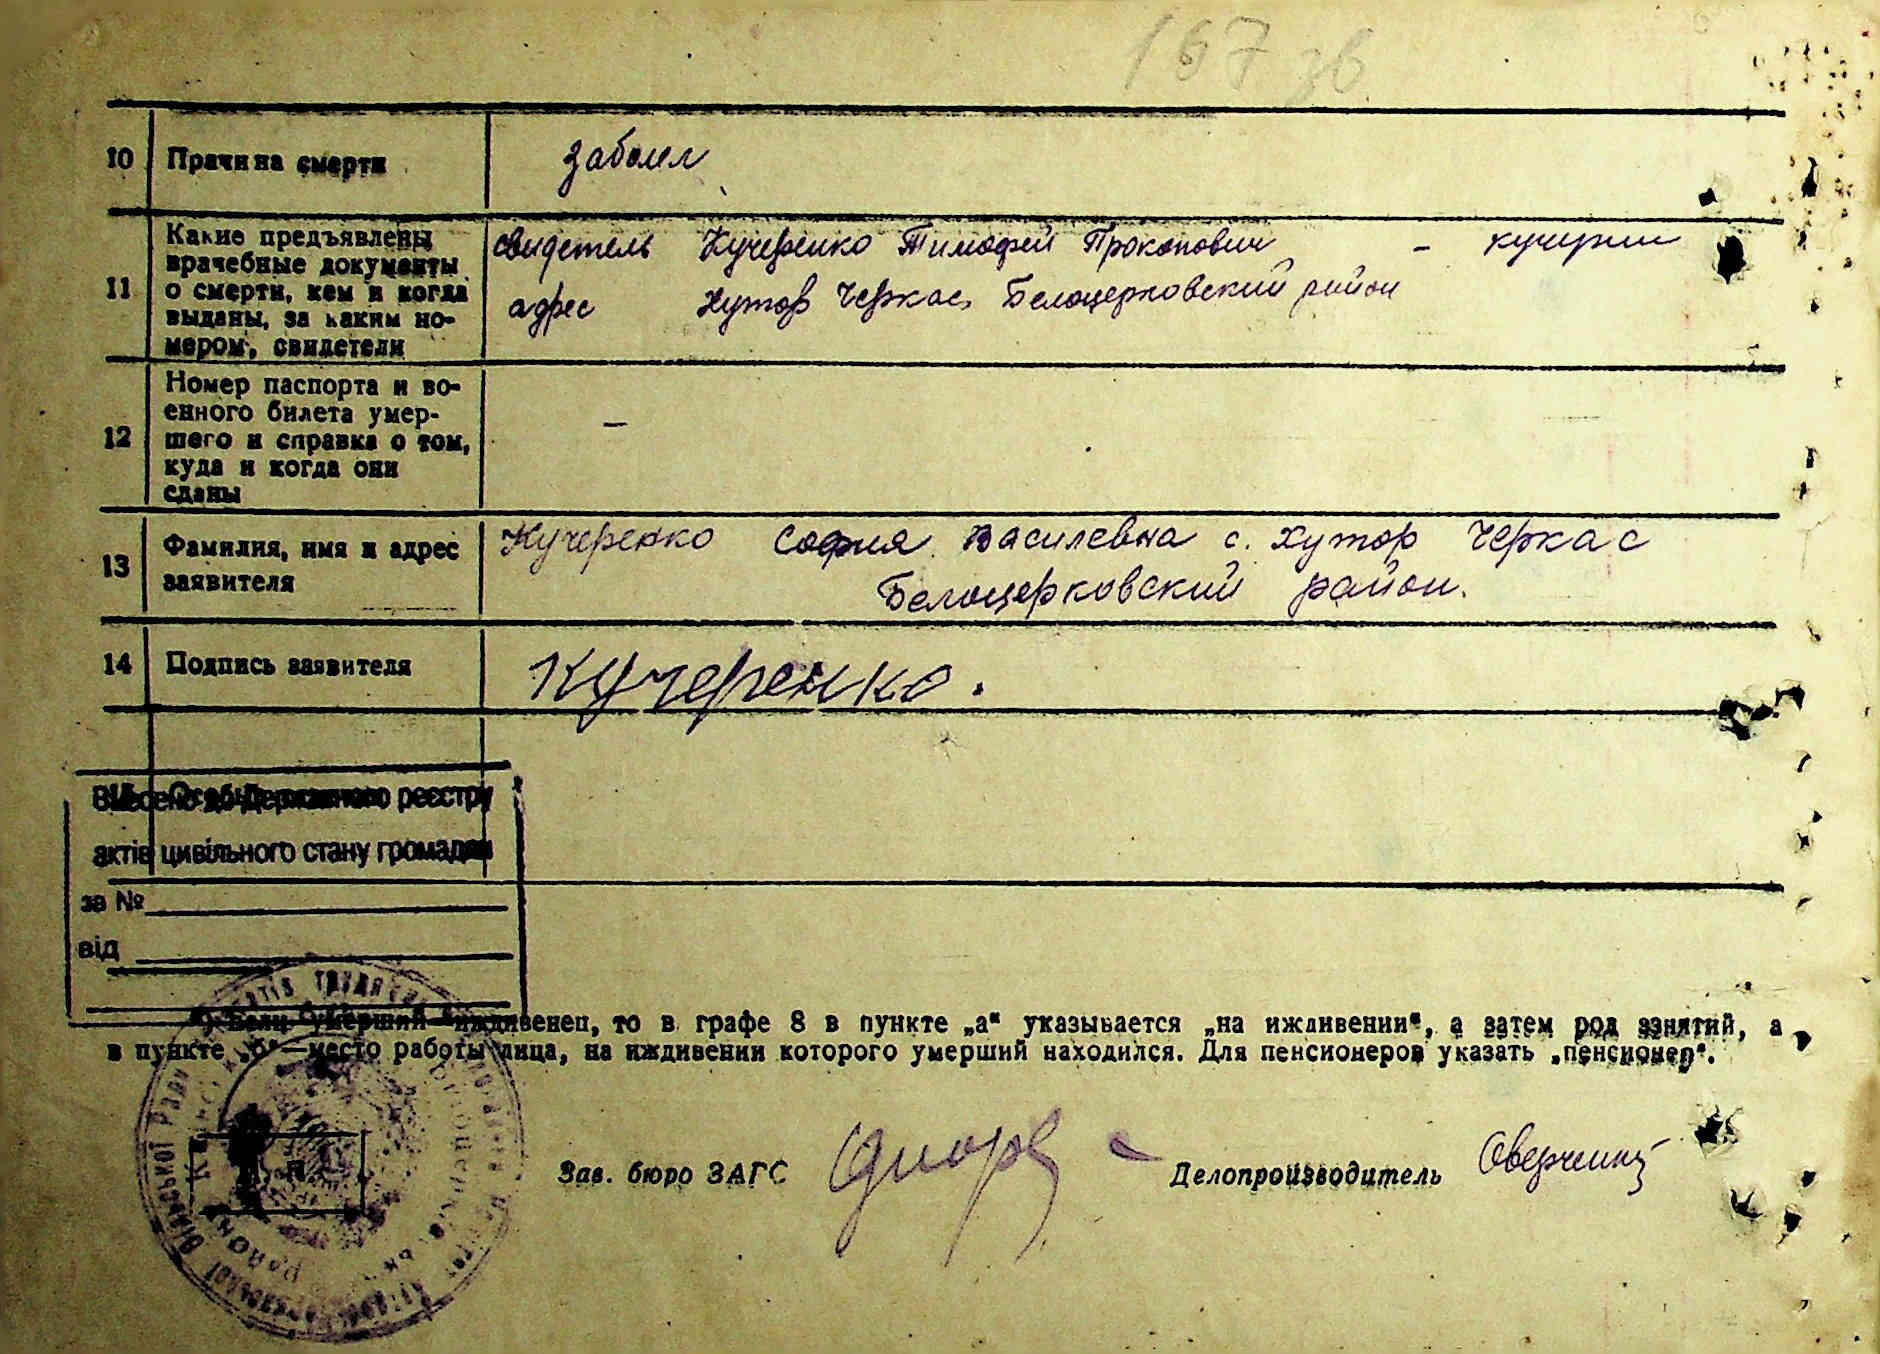 167 зв
10 Причина смерти заболел
11 Какие предъявлены врачебные документы о смерти, кем и когда выданы, за каким но-
мером, свидетели
свидетель Кучеренко Тимофей Прокопович –
адрес Хутор Черкас, Белоцерковский район
12 Номер паспорта и во-
енного билета умер-
шего и справка о том,
куда и когда они
сданы
–
13 Фамилия, имя и адрес
заявителя
Кучеренко София Василевна с. Хутор Черкас
Белоцерковский район.
14 Подпись заявителя Кучеренко.
Внесено до Державного реєстру
актів цивільного стану громадян
за №
від
*) Если умерший иждивенец, то в графе 8 в пункте „а“ указывается „на иждивении“, а затем род занятий, а
в пункте „б“—место работы лица, на иждивении которого умерший находился. Для пенсионеров указать „пенсионер“.
Зав. бюро ЗАГС Делопроизводитель